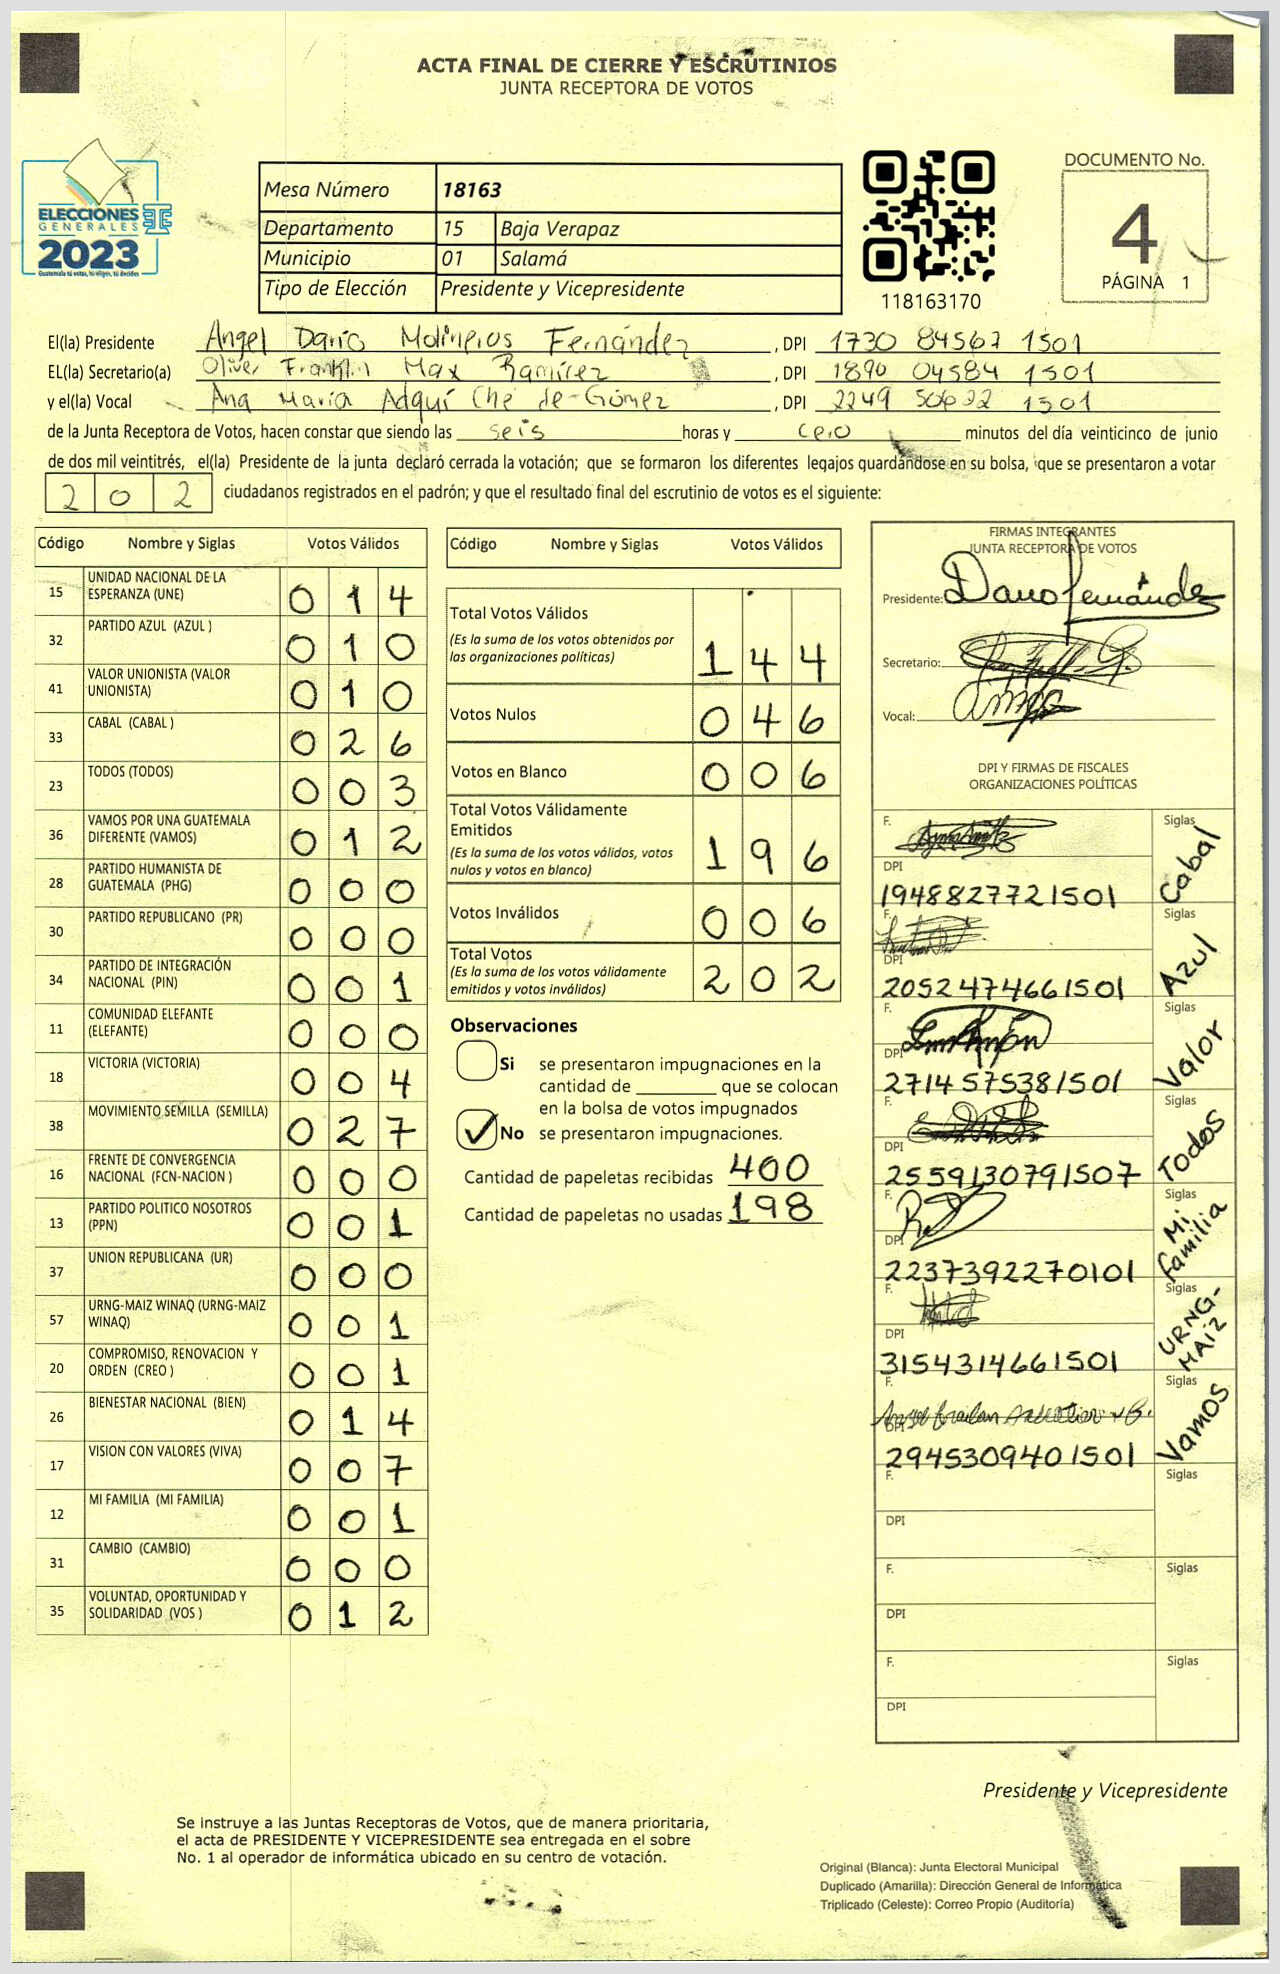 ACTA FINAL DE CIERRE Y ESCRUTINIOS
JUNTA RECEPTORA DE VOTOS
ELECCIONES
GENERALES
2023
Guatemala tú votas, tú eliges, tú decides
Mesa Número 18163
Departamento 15 Baja Verapaz
Municipio 01 Salamá
Tipo de Elección Presidente y Vicepresidente
118163170
DOCUMENTO No.
4
PÁGINA 1
El(la) Presidente Angel Darío Molineros Fernández, DPI 1730 84567 1501
EL(la) Secretario(a) Oliver Franklin Max Ramírez, DPI 1890 04584 1501
y el(la) Vocal Ana María Adqui Ché de Gómez, DPI 2249 50622 1501
de la Junta Receptora de Votos, hacen constar que siendo las seis horas y cero minutos del día veinticinco de junio
de dos mil veintitrés, el(la) Presidente de la junta declaró cerrada la votación; que se formaron los diferentes legajos guardándose en su bolsa, que se presentaron a votar
202 ciudadanos registrados en el padrón; y que el resultado final del escrutinio de votos es el siguiente:
Código Nombre y Siglas Votos Válidos
15 UNIDAD NACIONAL DE LA ESPERANZA (UNE) 014
32 PARTIDO AZUL (AZUL ) 010
41 VALOR UNIONISTA (VALOR UNIONISTA) 010
33 CABAL (CABAL ) 026
23 TODOS (TODOS) 003
36 VAMOS POR UNA GUATEMALA DIFERENTE (VAMOS) 012
28 PARTIDO HUMANISTA DE GUATEMALA (PHG) 000
30 PARTIDO REPUBLICANO (PR) 000
34 PARTIDO DE INTEGRACIÓN NACIONAL (PIN) 001
11 COMUNIDAD ELEFANTE (ELEFANTE) 000
18 VICTORIA (VICTORIA) 004
38 MOVIMIENTO SEMILLA (SEMILLA) 027
16 FRENTE DE CONVERGENCIA NACIONAL (FCN-NACION ) 000
13 PARTIDO POLITICO NOSOTROS (PPN) 001
37 UNION REPUBLICANA (UR) 000
57 URNG-MAIZ WINAQ (URNG-MAIZ WINAQ) 001
20 COMPROMISO, RENOVACION Y ORDEN (CREO ) 001
26 BIENESTAR NACIONAL (BIEN) 014
17 VISION CON VALORES (VIVA) 007
12 MI FAMILIA (MI FAMILIA) 001
31 CAMBIO (CAMBIO) 000
35 VOLUNTAD, OPORTUNIDAD Y SOLIDARIDAD (VOS ) 012
Código Nombre y Siglas Votos Válidos
Total Votos Válidos 144
(Es la suma de los votos obtenidos por
las organizaciones políticas)
Votos Nulos 046
Votos en Blanco 006
Total Votos Válidamente
Emitidos 196
(Es la suma de los votos válidos, votos
nulos y votos en blanco)
Votos Inválidos 006
Total Votos 202
(Es la suma de los votos válidamente
emitidos y votos inválidos)
Observaciones
Si se presentaron impugnaciones en la
cantidad de ________ que se colocan
en la bolsa de votos impugnados
No se presentaron impugnaciones.
Cantidad de papeletas recibidas 400
Cantidad de papeletas no usadas 198
FIRMAS INTEGRANTES
JUNTA RECEPTORA DE VOTOS
Presidente: Dario Fernández
Secretario:
Vocal:
DPI Y FIRMAS DE FISCALES
ORGANIZACIONES POLÍTICAS
F. Siglas Cabal
DPI 1948827721501
F. Siglas Azul
DPI 2052474661501
F. Siglas Valor
DPI 2714575381501
F. Siglas Todos
DPI 2559130791507
F. Siglas Mi familia
DPI 2237392270101
F. Siglas URNG-MAIZ
DPI 3154314661501
F. Siglas Vamos
DPI 2945309401501
F. Siglas
DPI
F. Siglas
DPI
F. Siglas
DPI
Presidente y Vicepresidente
Se instruye a las Juntas Receptoras de Votos, que de manera prioritaria,
el acta de PRESIDENTE Y VICEPRESIDENTE sea entregada en el sobre
No. 1 al operador de informática ubicado en su centro de votación.
Original (Blanca): Junta Electoral Municipal
Duplicado (Amarilla): Dirección General de Informática
Triplicado (Celeste): Correo Propio (Auditoría)